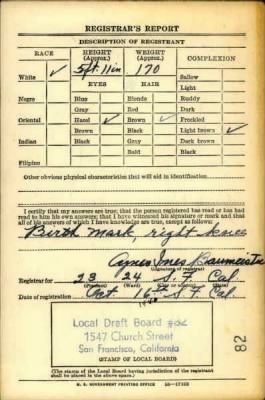 REGISTRAR'S REPORT
DESCRIPTION OF REGISTRANT
RACE HEIGHT (Approx.) WEIGHT (Approx.) COMPLEXION
5 ft. 11 in 170
White ✓ EYES HAIR Sallow
Light
Negro Blue Blonde Ruddy
Gray Red Dark
Oriental Hazel ✓ Brown ✓ Freckled
Brown Black Light brown ✓
Indian Black Gray Dark brown
Bald Black
Filipino
Other obvious physical characteristics that will aid in identification
I certify that my answers are true; that the person registered has read or has had
read to him his own answers; that I have witnessed his signature or mark and that
all of his answers of which I have knowledge are true, except as follows:
Birth mark, right knee
Agnes Jones Baumeister
(Signature of registrar)
Registrar for 23 24 S. F. Cal.
(Precinct) (Ward) (City or county) (State)
Date of registration Oct. 16th S. F. Cal.
1940
Local Draft Board #82
1547 Church Street
San Francisco, California
(STAMP OF LOCAL BOARD)
82
(The stamp of the Local Board having jurisdiction of the registrant
shall be placed in the above space.)
U. S. GOVERNMENT PRINTING OFFICE 16—17105